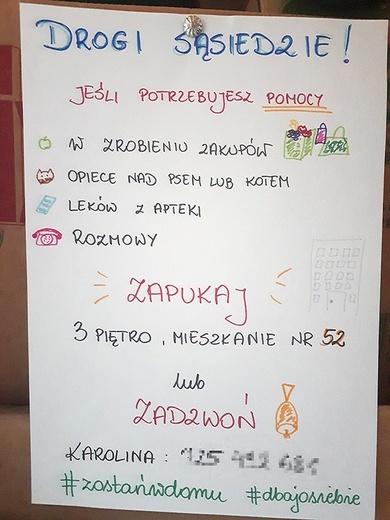 DROGI SĄSIEDZIE!
JEŚLI POTRZEBUJESZ POMOCY
W ZROBIENIU ZAKUPÓW
OPIECE NAD PSEM LUB KOTEM
LEKÓW Z APTEKI
ROZMOWY
ZAPUKAJ
3 PIĘTRO, MIESZKANIE NR 52
lub
ZADZWOŃ
KAROLINA:
#zostańwdomu #dbajosiebie